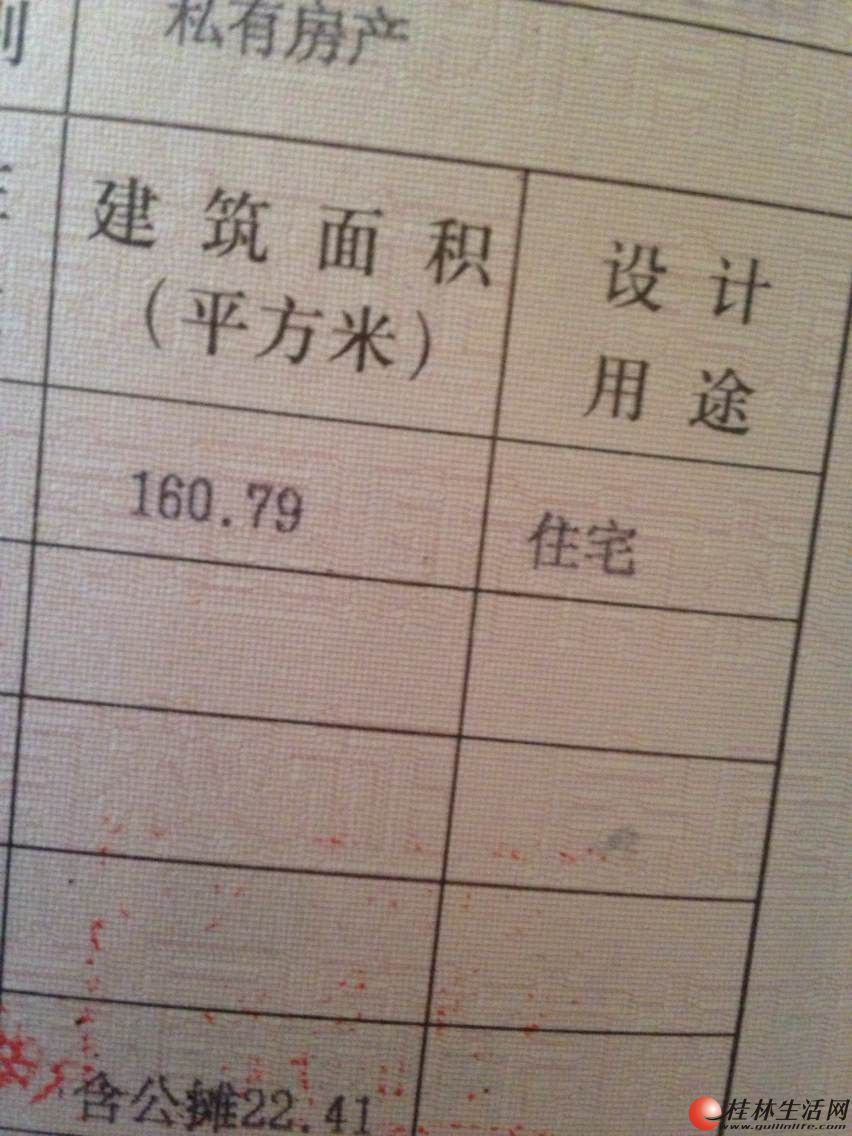 私有房产
建筑面积
（平方米）
设计
用途
160.79
住宅
含公摊22.41
桂林生活网
www.guilinlife.com